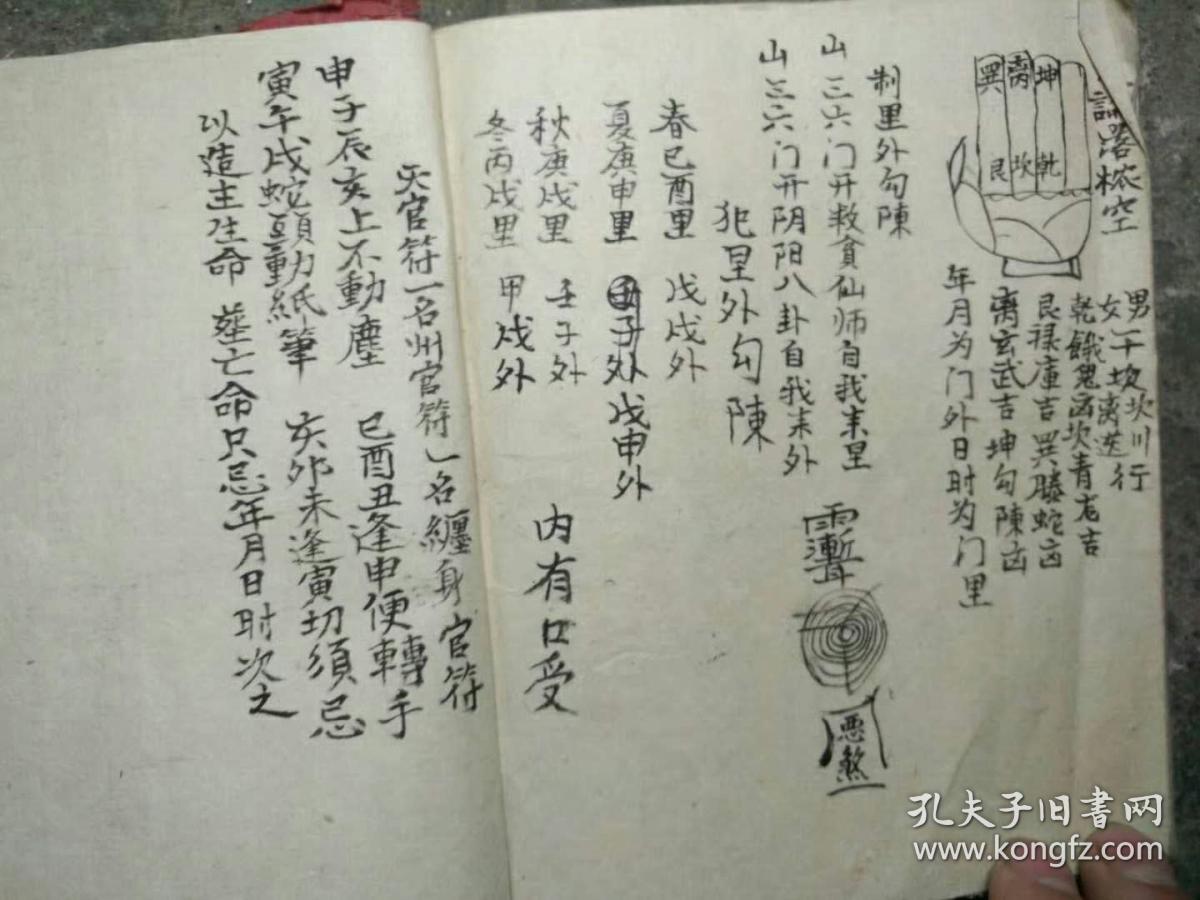 落梹空
巽 离 坤
艮 坎 乾
男一十坎坎川行
女一十离离逆
乾餓鬼凶坎青龙吉
艮禄庫吉巽騰蛇凶
离玄武吉坤勾陳凶
年月为门外日时为门里
制里外勾陳
山三六门开救貧仙师自我来里
山三六门开阴阳八卦自我来外
悪煞
犯里外勾陳
春已酉里 戊戌外
夏庚申里 子外戊申外
秋庚戌里 壬子外
冬丙戌里 甲戌外
内有口受
天官符一名州官符一名纏身官符
申子辰亥上不動塵 巳酉丑逢申便轉手
寅午戌蛇頭動紙筆 亥卯未逢寅切須忌
以造主生命 塟亡命只忌年月日时次之
孔夫子旧书网
www.kongfz.com